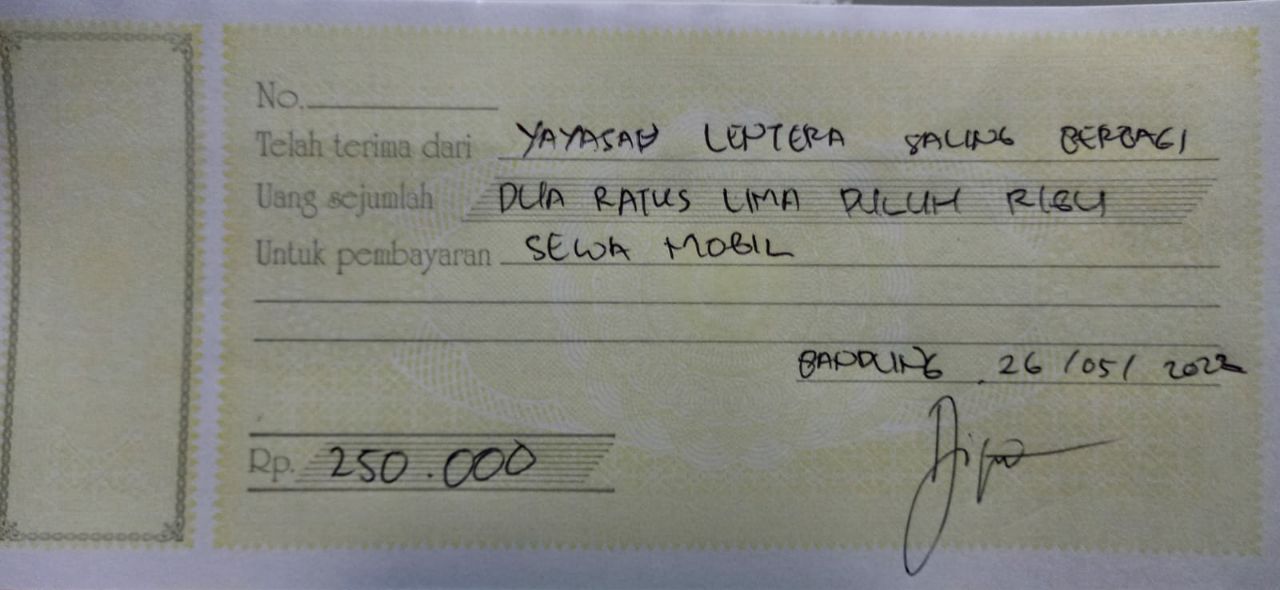 No.
Telah terima dari YAYASAN LENTERA SALING BERBAGI
Uang sejumlah DUA RATUS LIMA PULUH RIBU
Untuk pembayaran SEWA MOBIL
BANDUNG, 26/05/2022
Rp. 250.000